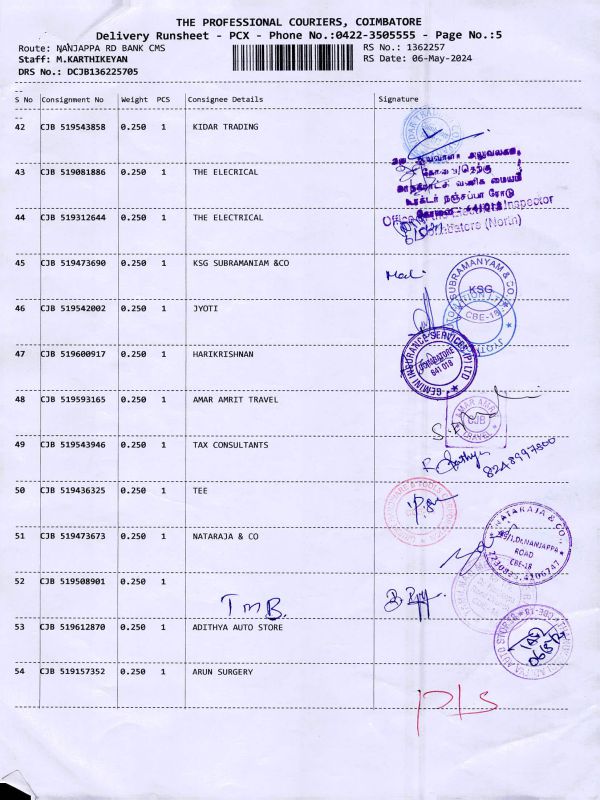 THE PROFESSIONAL COURIERS, COIMBATORE
Delivery Runsheet - PCX - Phone No.:0422-3505555 - Page No.:5
Route: NANJAPPA RD BANK CMS
RS No.: 1362257
Staff: M.KARTHIKEYAN
RS Date: 06-May-2024
DRS No.: DCJB136225705
S No Consignment No Weight PCS Consignee Details Signature
42 CJB 519543858 0.250 1 KIDAR TRADING
43 CJB 519081886 0.250 1 THE ELECRICAL
44 CJB 519312644 0.250 1 THE ELECTRICAL
Coimbatore (North)
45 CJB 519473690 0.250 1 KSG SUBRAMANIAM &CO
SUBRAMANYAM & CO
KSG
CBE-18
46 CJB 519542002 0.250 1 JYOTI
47 CJB 519600917 0.250 1 HARIKRISHNAN
GEMINI INSURANCE SERVICES (P) LTD
COIMBATORE
641 018
48 CJB 519593165 0.250 1 AMAR AMRIT TRAVEL
CJB
TRAVEL
49 CJB 519543946 0.250 1 TAX CONSULTANTS
50 CJB 519436325 0.250 1 TEE
51 CJB 519473673 0.250 1 NATARAJA & CO
NATARAJA & CO
NANJAPPA
ROAD
CBE-18
52 CJB 519508901 0.250 1
TMB.
53 CJB 519612870 0.250 1 ADITHYA AUTO STORE
54 CJB 519157352 0.250 1 ARUN SURGERY